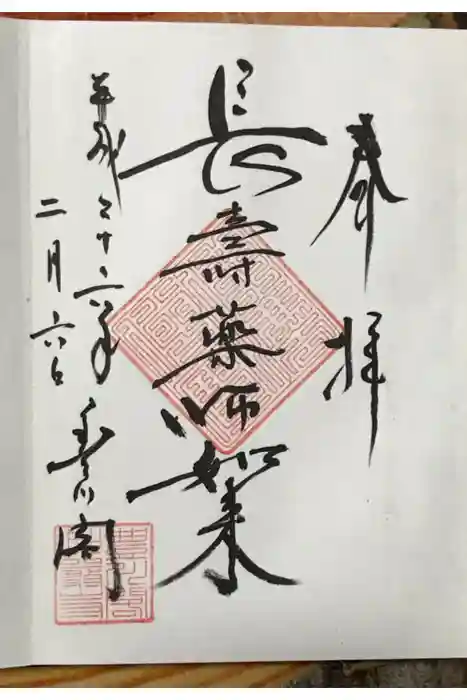 奉拝
長壽藥師如来
平成二十六年
二月六日
豊川閣